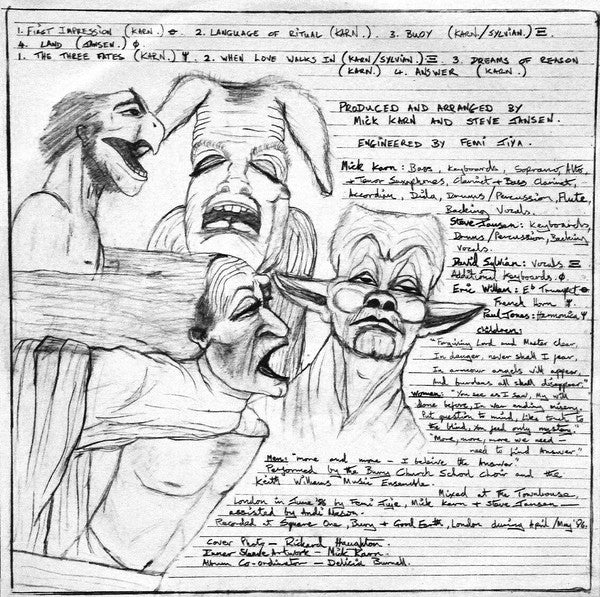 1. FIRST IMPRESSION (KARN.) ⊖ 2. LANGUAGE OF RITUAL (KARN.) 3. BUOY (KARN/SYLVIAN.) Ξ
4. LAND (JANSEN.) ϕ
1. THE THREE FATES (KARN.) Ψ 2. WHEN LOVE WALKS IN (KARN/SYLVIAN.) Ξ 3. DREAMS OF REASON
(KARN.) 4. ANSWER (KARN.)
PRODUCED AND ARRANGED BY
MICK KARN AND STEVE JANSEN.
ENGINEERED BY FEMI JIYA.
Mick Karn: Bass, Keyboards, Soprano, Alto,
+ Tenor Saxophones, Clarinet + Bass Clarinet,
Accordian, Dida, Drums/Percussion, Flute,
Backing Vocals.
Steve Jansen: Keyboards,
Drums/Percussion, Backing
Vocals.
David Sylvian: Vocals Ξ
Additional Keyboards. ϕ
Eric Willam: Eb Trumpet ⊖
French Horn Ψ.
Paul Jones: Harmonica Ψ
Children:
"Forgiving Lord and Master dear,
In danger, never shall I fear,
In armour angels will appear,
And burdens all shall disappear."
Women: "You see as I saw, My will
done before, In war ending misery.
Put question to mind, like touch to
the blind, You feel only mystery."
"More, more, more we need —
need to find Answer."
Men: "more and more — I believe the Answer."
Performed by the Bury Church School Choir and the
Keith Williams Music Ensemble.
Mixed at the Townhouse,
London in June '86 by Femi Jiya, Mick Karn + Steve Jansen —
assisted by Andi
Recorded at Square One, Bury + Good Earth, London during April/May '86.
Cover Photo — Richard Haughton.
Inner Sleeve Artwork — Mick Karn.
Album Co-ordinator — Delicia Burnell.